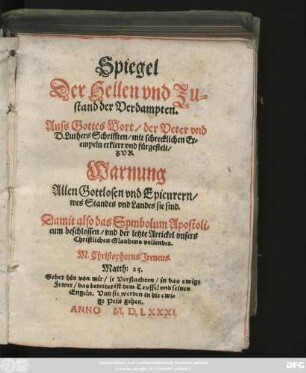 Spiegel
Der Hellen vnd Zu-
stand der Verdampten.
Auss Gottes Wort / der Veter vnd
D. Luthers Schrifften / mit schrecklichen Ex-
empeln erklert vnd fürgestelt /
ZVR
Warnung
Allen Gottlosen vnd Epicurern /
wes Standes vnd Landes sie sind.
Damit also das Symbolum Apostoli-
cum beschlossen / vnd der letzte Artickel vnsers
Christlichen Glaubens vollendet.
M. Christophorus Ireneus.
Matth: 25.
Gehet hin von mir / jr Verfluchten / in das ewige
Fewer / das bereitet ist dem Teuffel vnd seinen
Engeln. Vnd sie werden in die ewi-
ge Pein gehen.
ANNO M. D. LXXXI.